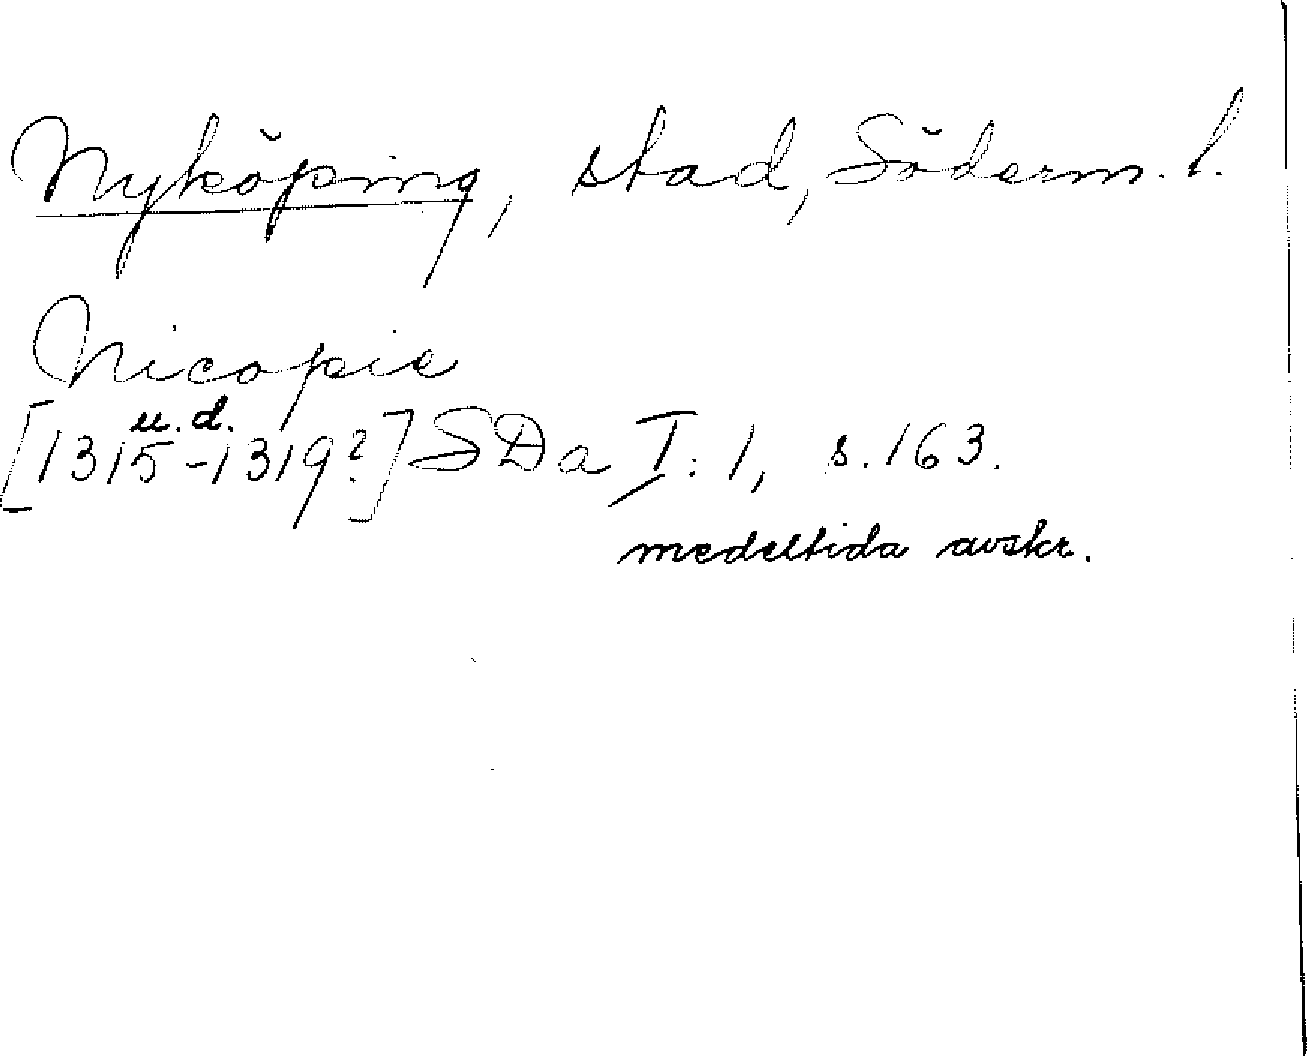 Nyköping, stad, Söderm. l.
Nicopie
u. d.
[1315-1319?] SDa I: 1, s. 163.
medeltida avskr.